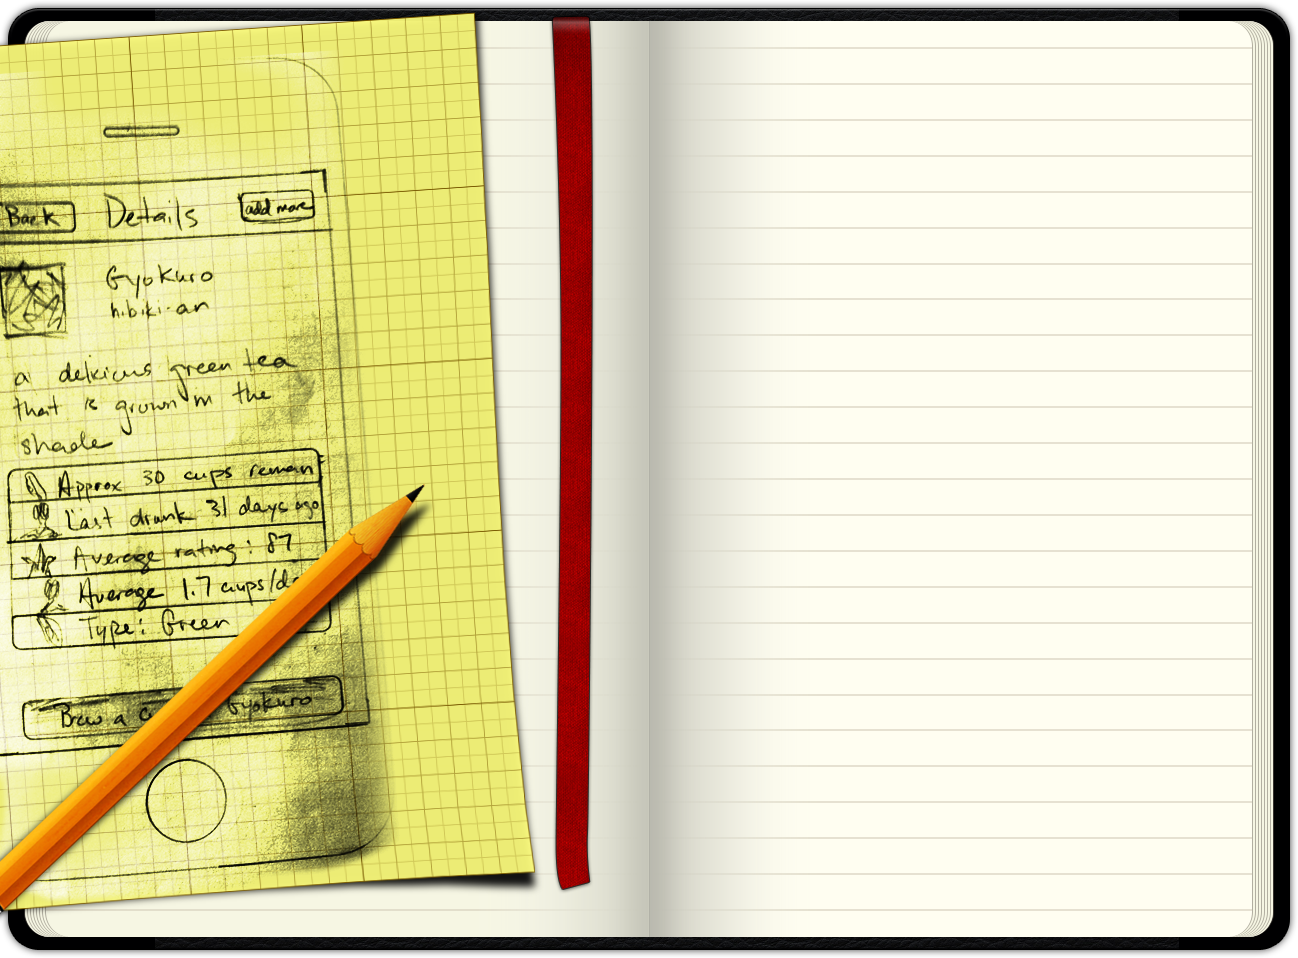 Back Details add more
Gyokuro
hibiki-an
a delicious green tea
that is grown in the
shade
Approx 30 cups remain
Last drunk 31 days ago
Average rating: 87
Average 1.7 cups/da
Type: Green
Brew a c Gyokuro